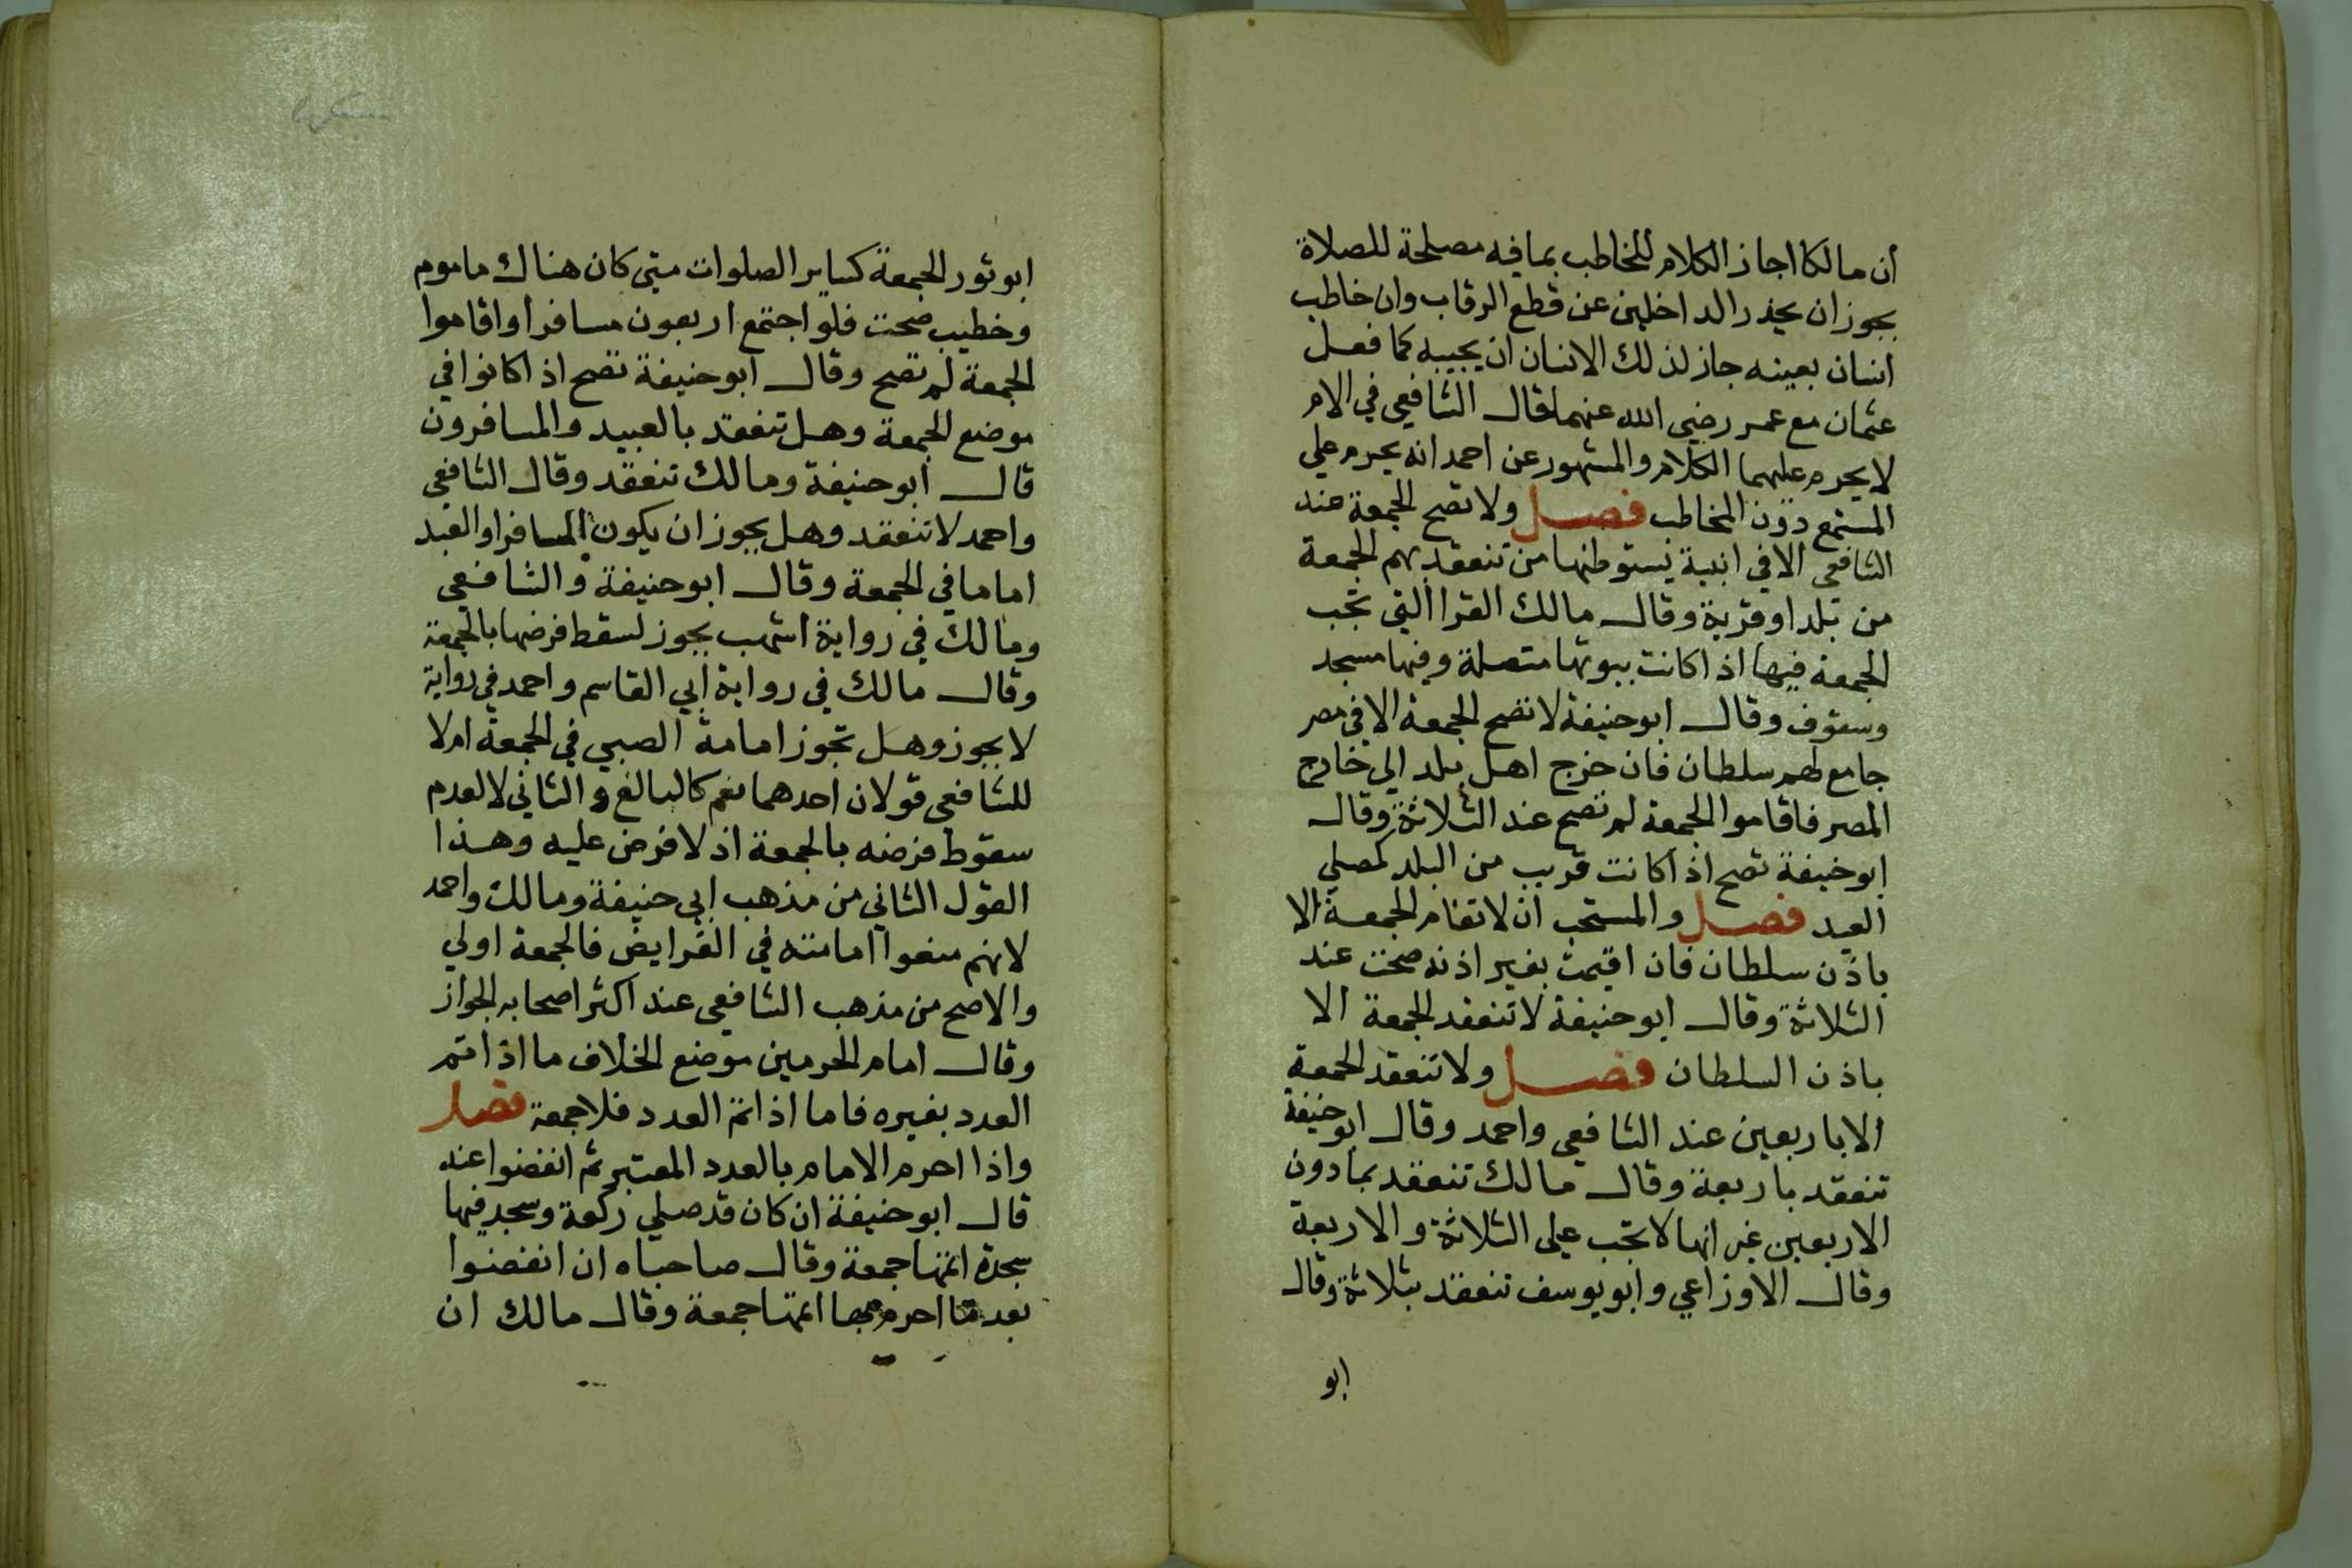 أن مالكا اجاز الكلام للخاطب بما فيه مصلحة للصلاة
يجوز ان يحذر الداخلين عن قطع الرقاب وان خاطب
انسان بعينه جاز لذلك الانسان ان يجيبه كما فعل
عثمان مع عمر رضي الله عنهما قال الشافعي في الام
لا يحرم عليهما الكلام والمشهور عن احمد انه يحرم علي
المستمع دون المخاطب فصل ولا تصح الجمعة عند
الشافعي الا في ابنية يستوطنها من تنعقد بهم الجمعة
من بلد او قرية وقال مالك القرا التي تجب
الجمعة فيها اذا كانت بيوتها متصلة وفيها مسجد
وسقوف وقال ابو حنيفة لا تصح الجمعة الا في مصر
جامع لهم سلطان فان خرج اهل بلد الي خارج
المصر فاقاموا الجمعة لم تصح عند الثلاثة وقال
ابو حنيفة تصح اذا كانت قريب من البلد كمصلي
العيد فصل والمستحب ان لا تقام الجمعة الا
باذن سلطان فان اقيمت بغير اذنه صحت عند
الثلاثة وقال ابو حنيفة لا تنعقد الجمعة الا
باذن السلطان فصل ولا تنعقد الجمعة
الا باربعين عند الشافعي واحمد وقال ابو حنيفة
تنعقد باربعة وقال مالك تنعقد بما دون
الاربعين غير انها لا تجب علي الثلاثة والاربعة
وقال الاوزاعي وابو يوسف تنعقد بثلاثة وقال
ابو
ابو ثور الجمعة كساير الصلوات متي كان هناك ماموم
وخطيب صحت فلو اجتمع اربعون مسافرا واقاموا
الجمعة لم تصح وقال ابو حنيفة تصح اذا كانوا في
موضع الجمعة وهل تنعقد بالعبيد والمسافرون
قال ابو حنيفة ومالك تنعقد وقال الشافعي
واحمد لا تنعقد وهل يجوز ان يكون المسافر او العبد
اماما في الجمعة وقال ابو حنيفة والشافعي
ومالك في رواية اشهب يجوز لسقط فرضها بالجمعة
وقال مالك في رواية ابي القاسم واحمد في رواية
لا يجوز وهل تجوز امامة الصبي في الجمعة ام لا
للشافعي قولان احدهما نعم كالبالغ والثاني لا لعدم
سقوط فرضه بالجمعة اذ لا فرض عليه وهذا
القول الثاني من مذهب ابي حنيفة ومالك واحمد
لانهم منعوا امامته في الفرايض فالجمعة اولي
والاصح من مذهب الشافعي عند اكثر اصحابه الجواز
وقال امام الحرمين موضع الخلاف ما اذا تم
العدد بغيره فاما اذا تم العدد فلا جمعة فصل
واذا احرم الامام بالعدد المعتبر ثم انفضوا عنه
قال ابو حنيفة ان كان قد صلي ركعة وسجد فيها
سجدة اتمها جمعة وقال صاحباه ان انفضوا
بعد ما احرم بها اتمها جمعة وقال مالك ان